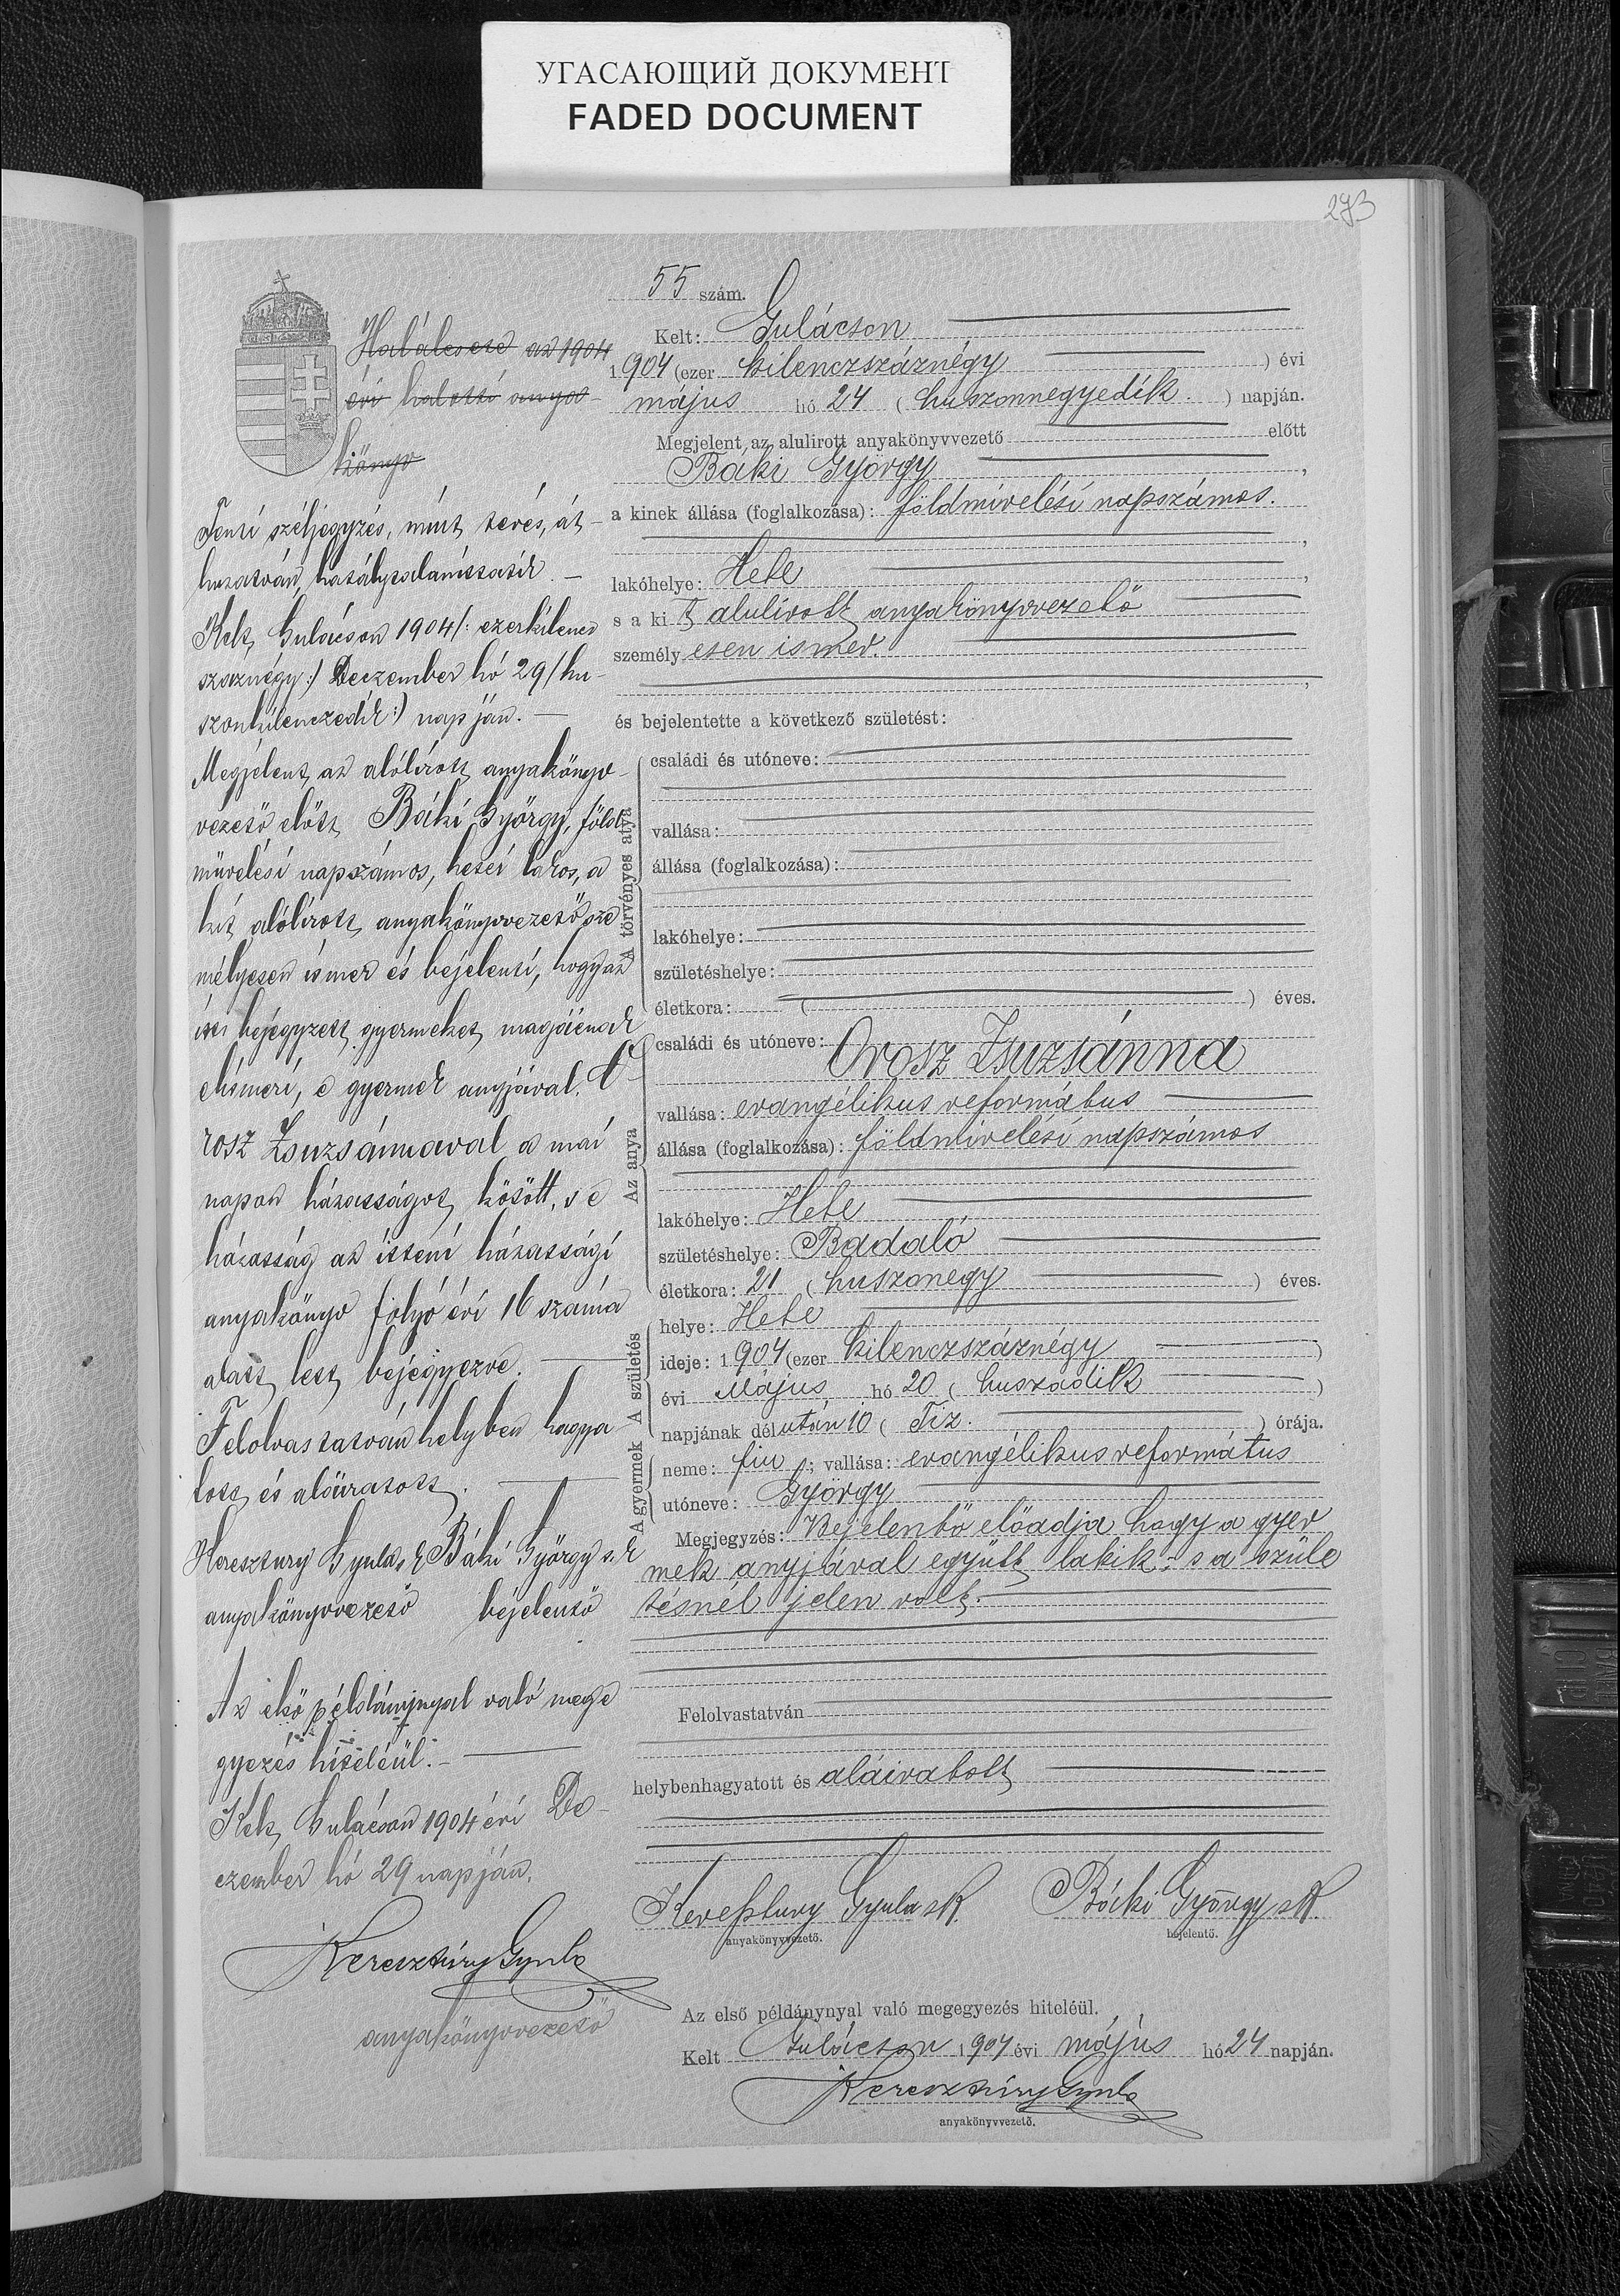 УГАСАЮЩИЙ ДОКУМЕНТ
FADED DOCUMENT
273
55 szám.
Kelt: Gulácson
1904 (ezer kilenczszáznégy ) évi
május hó 24 ( huszonnegyedik. ) napján.
Megjelent az alulirott anyakönyvvezető előtt
Báki György,
a kinek állása (foglalkozása): földmivelési napszámos.
lakóhelye: Hete,
s a ki t alulirott anyakönyvvezető
személy esen ismer.
és bejelentette a következő születést:
A törvényes atya
családi és utóneve:
vallása:
állása (foglalkozása):
lakóhelye:
születéshelye:
életkora: ( ) éves.
Az anya
családi és utóneve: Orosz Zsuzsánna
vallása: evangélikus református
állása (foglalkozása): földmivelési napszámos
lakóhelye: Hete
születéshelye: Badaló
életkora: 21 ( huszonegy ) éves.
A születés
helye: Hete
ideje: 1904 (ezer kilenczszáznégy )
évi Május hó 20 ( huszadik )
napjának délután 10 ( Tiz. ) órája.
A gyermek
neme: fiu ; vallása: evangélikus református
utóneve: György
Megjegyzés: Bejelentő előadja hogy a gyer
mek anyjával együtt lakik; s a szüle
tésnél jelen volt.
Felolvastatván
helybenhagyatott és aláiratott
Keresztury Gyula sk. Báki György sk.
anyakönyvvezető. bejelentő.
Az első példánynyal való megegyezés hiteléül.
Kelt Gulácson 1904 évi május hó 24 napján.
Keresztúry Gyula
anyakönyvvezető.
Halálesete az 1904
évi halotti anya-
könyv
Fenti széljegyzés, mint téves, át-
huzatván, hatálytalanittatik. -
Kelt Gulácson 1904 /: ezerkilencz
száznégy :/ Deczember hó 29 /hu-
szonkilenczedik :) napján. -
Megjelent az alólirott anyakönyv-
vezető előtt Báki György, föld
müvelési napszámos, hetei lakos, a
kit alólirott anyakönyvvezető sze
mélyesen ismer és bejelenti, hogy az
itt bejegyzett gyermeket magáénak
elismeri, e gyermek anyjával. O-
rosz Zsuzsánnaval a mai
napon házasságot kötött, s e
házasság az itteni házassági
anyakönyv folyó évi 16 száma
alatt lett bejegyezve.
Felolvastatván helyben hagya
tott és aláiratott.
Keresztury Gyula s. k Báki György s. k
anyakönyvvezető bejelentő
Az első példánynyal való mege
gyezés hiteléül. -
Kelt, Gulácson 1904 évi De-
czember hó 29 napján.
Keresztúry Gyula
anyakönyvvezető